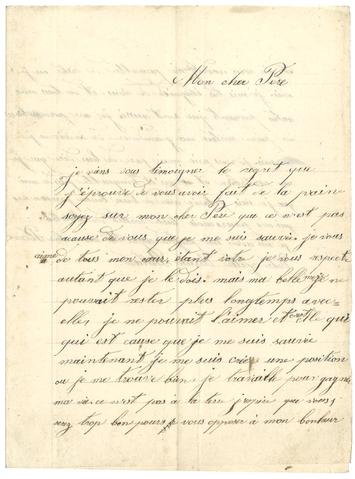 Mon cher Père
je viens vous temoigner le regret que
j'éprouve de vous avoir fait de la paine
soyez sur mon cher Père que ce n'est pas
acause de vous que je me suis sauvée. je vous
aime de tous mon cœur, étant votre je vous respecte
autant que je le dois. mais ma belle mère ne
pouvait rester plus longtemps avec
elle, je ne pouvait l'aimer et elle qui
qui est cause que je me suis sauvée
maintenant je me suis créée une position
ou je me trouve bien, je travaille pour gagner
ma vie ce n'est pas à la que vous
serez trop bon pour vous opposer à mon bonheur